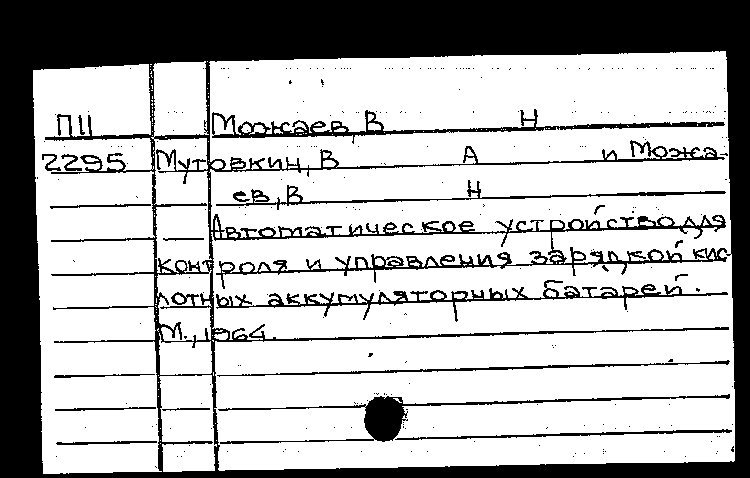 П11 Можаев, В Н
2295 Мутовкин, В А и Можа-
ев, В Н
Автоматическое устройство для
контроля и управления зарядкой кис-
лотных аккумуляторных батарей.
М., 1964.